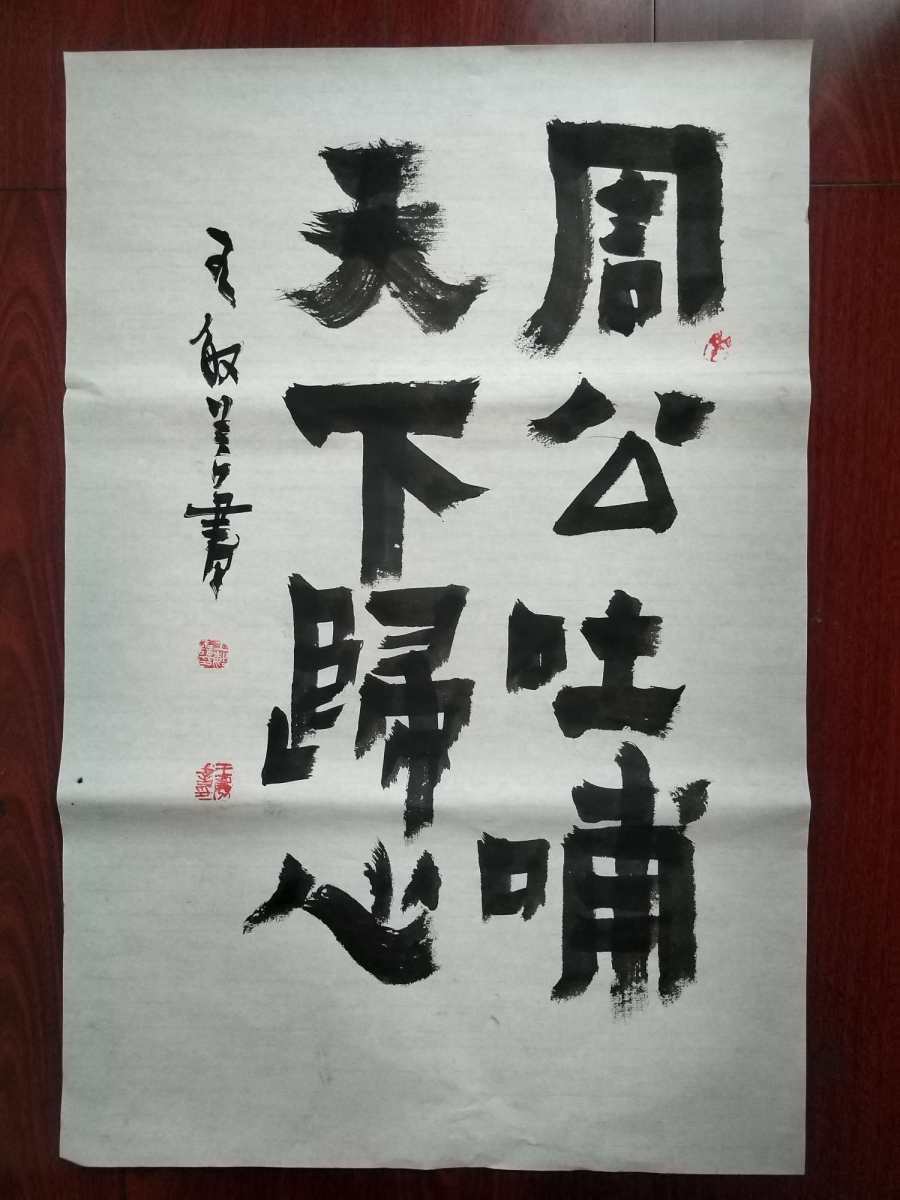 周公吐哺
天下歸心
王敏芳書